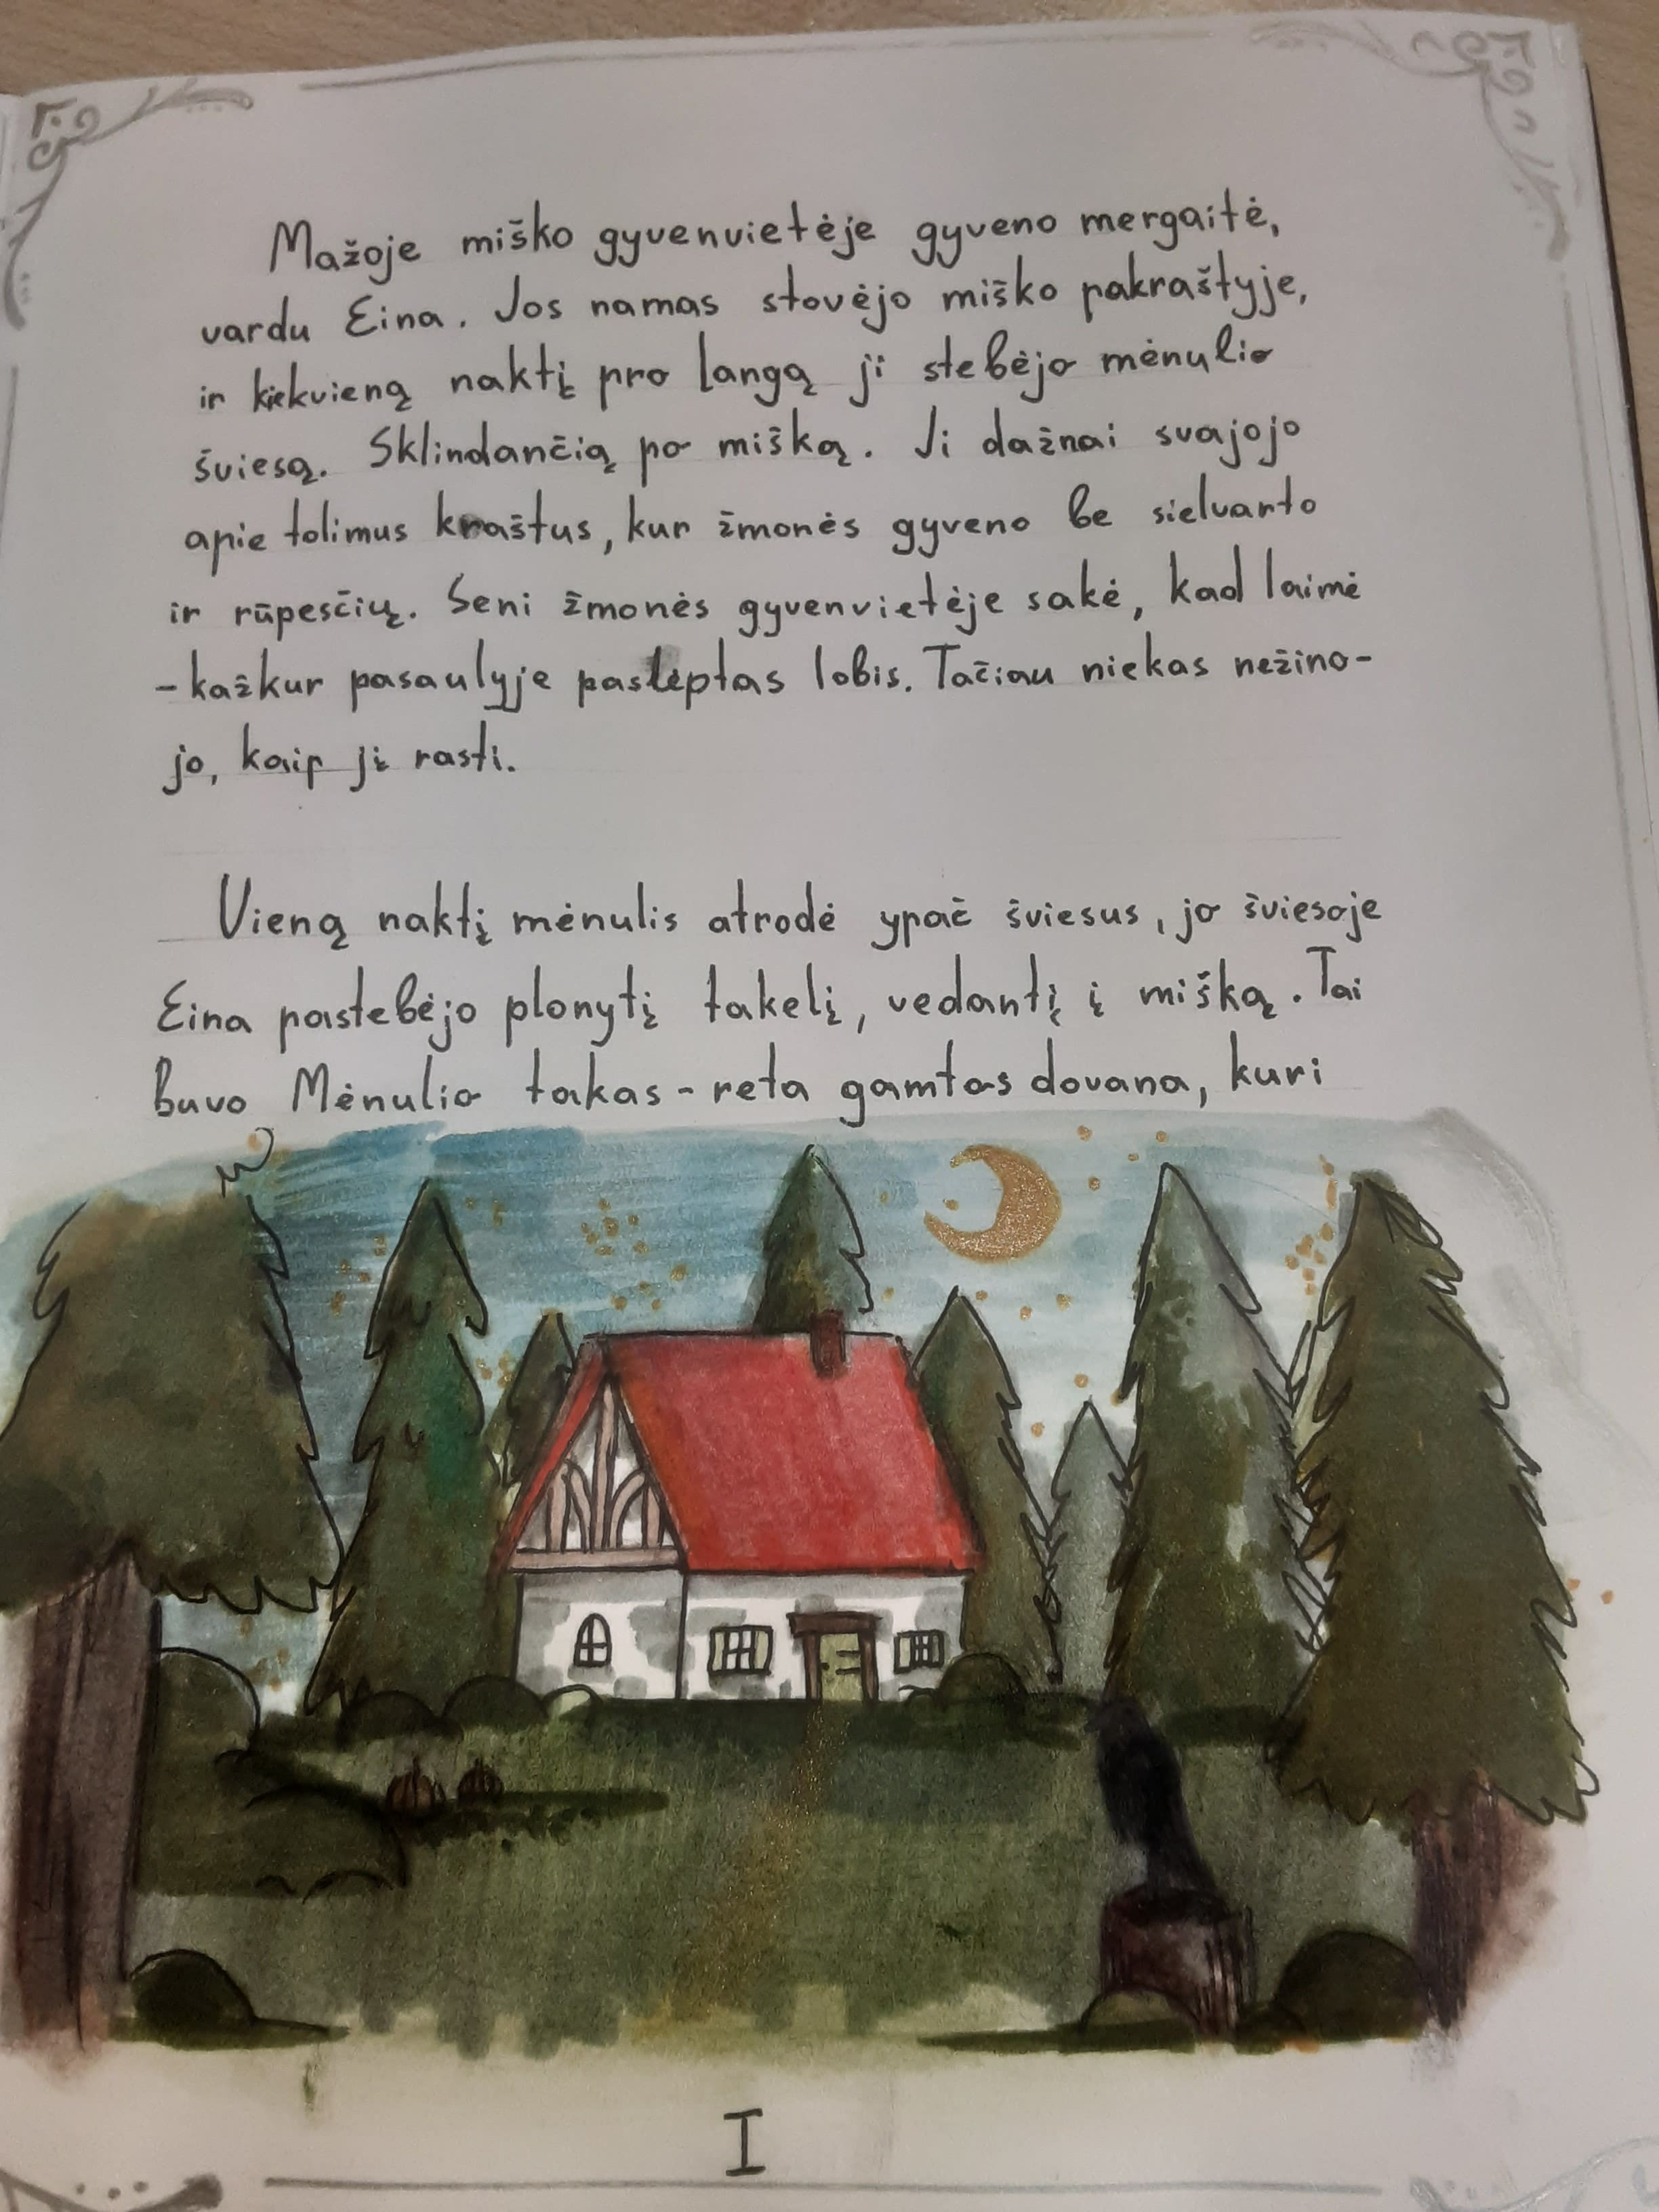 Mažoje miško gyvenvietėje gyveno mergaitė,
vardu Eina. Jos namas stovėjo miško pakraštyje,
ir kiekvieną naktį pro langą ji stebėjo mėnulio
šviesą. Sklindančią po mišką. Ji dažnai svajojo
apie tolimus kraštus, kur žmonės gyveno be sielvarto
ir rūpesčių. Seni žmonės gyvenvietėje sakė, kad laimė
-kažkur pasaulyje paslėptas lobis. Tačiau niekas nežino-
jo, kaip jį rasti.
Vieną naktį mėnulis atrodė ypač šviesus, jo šviesoje
Eina pastebėjo plonytį takelį, vedantį į mišką. Tai
buvo Mėnulio takas - reta gamtos dovana, kuri
I